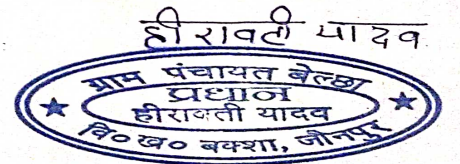 हीरावती यादव
ग्राम पंचायत बेल्छा
प्रधान
हीरावती यादव
वि०ख० बक्शा, जौनपुर